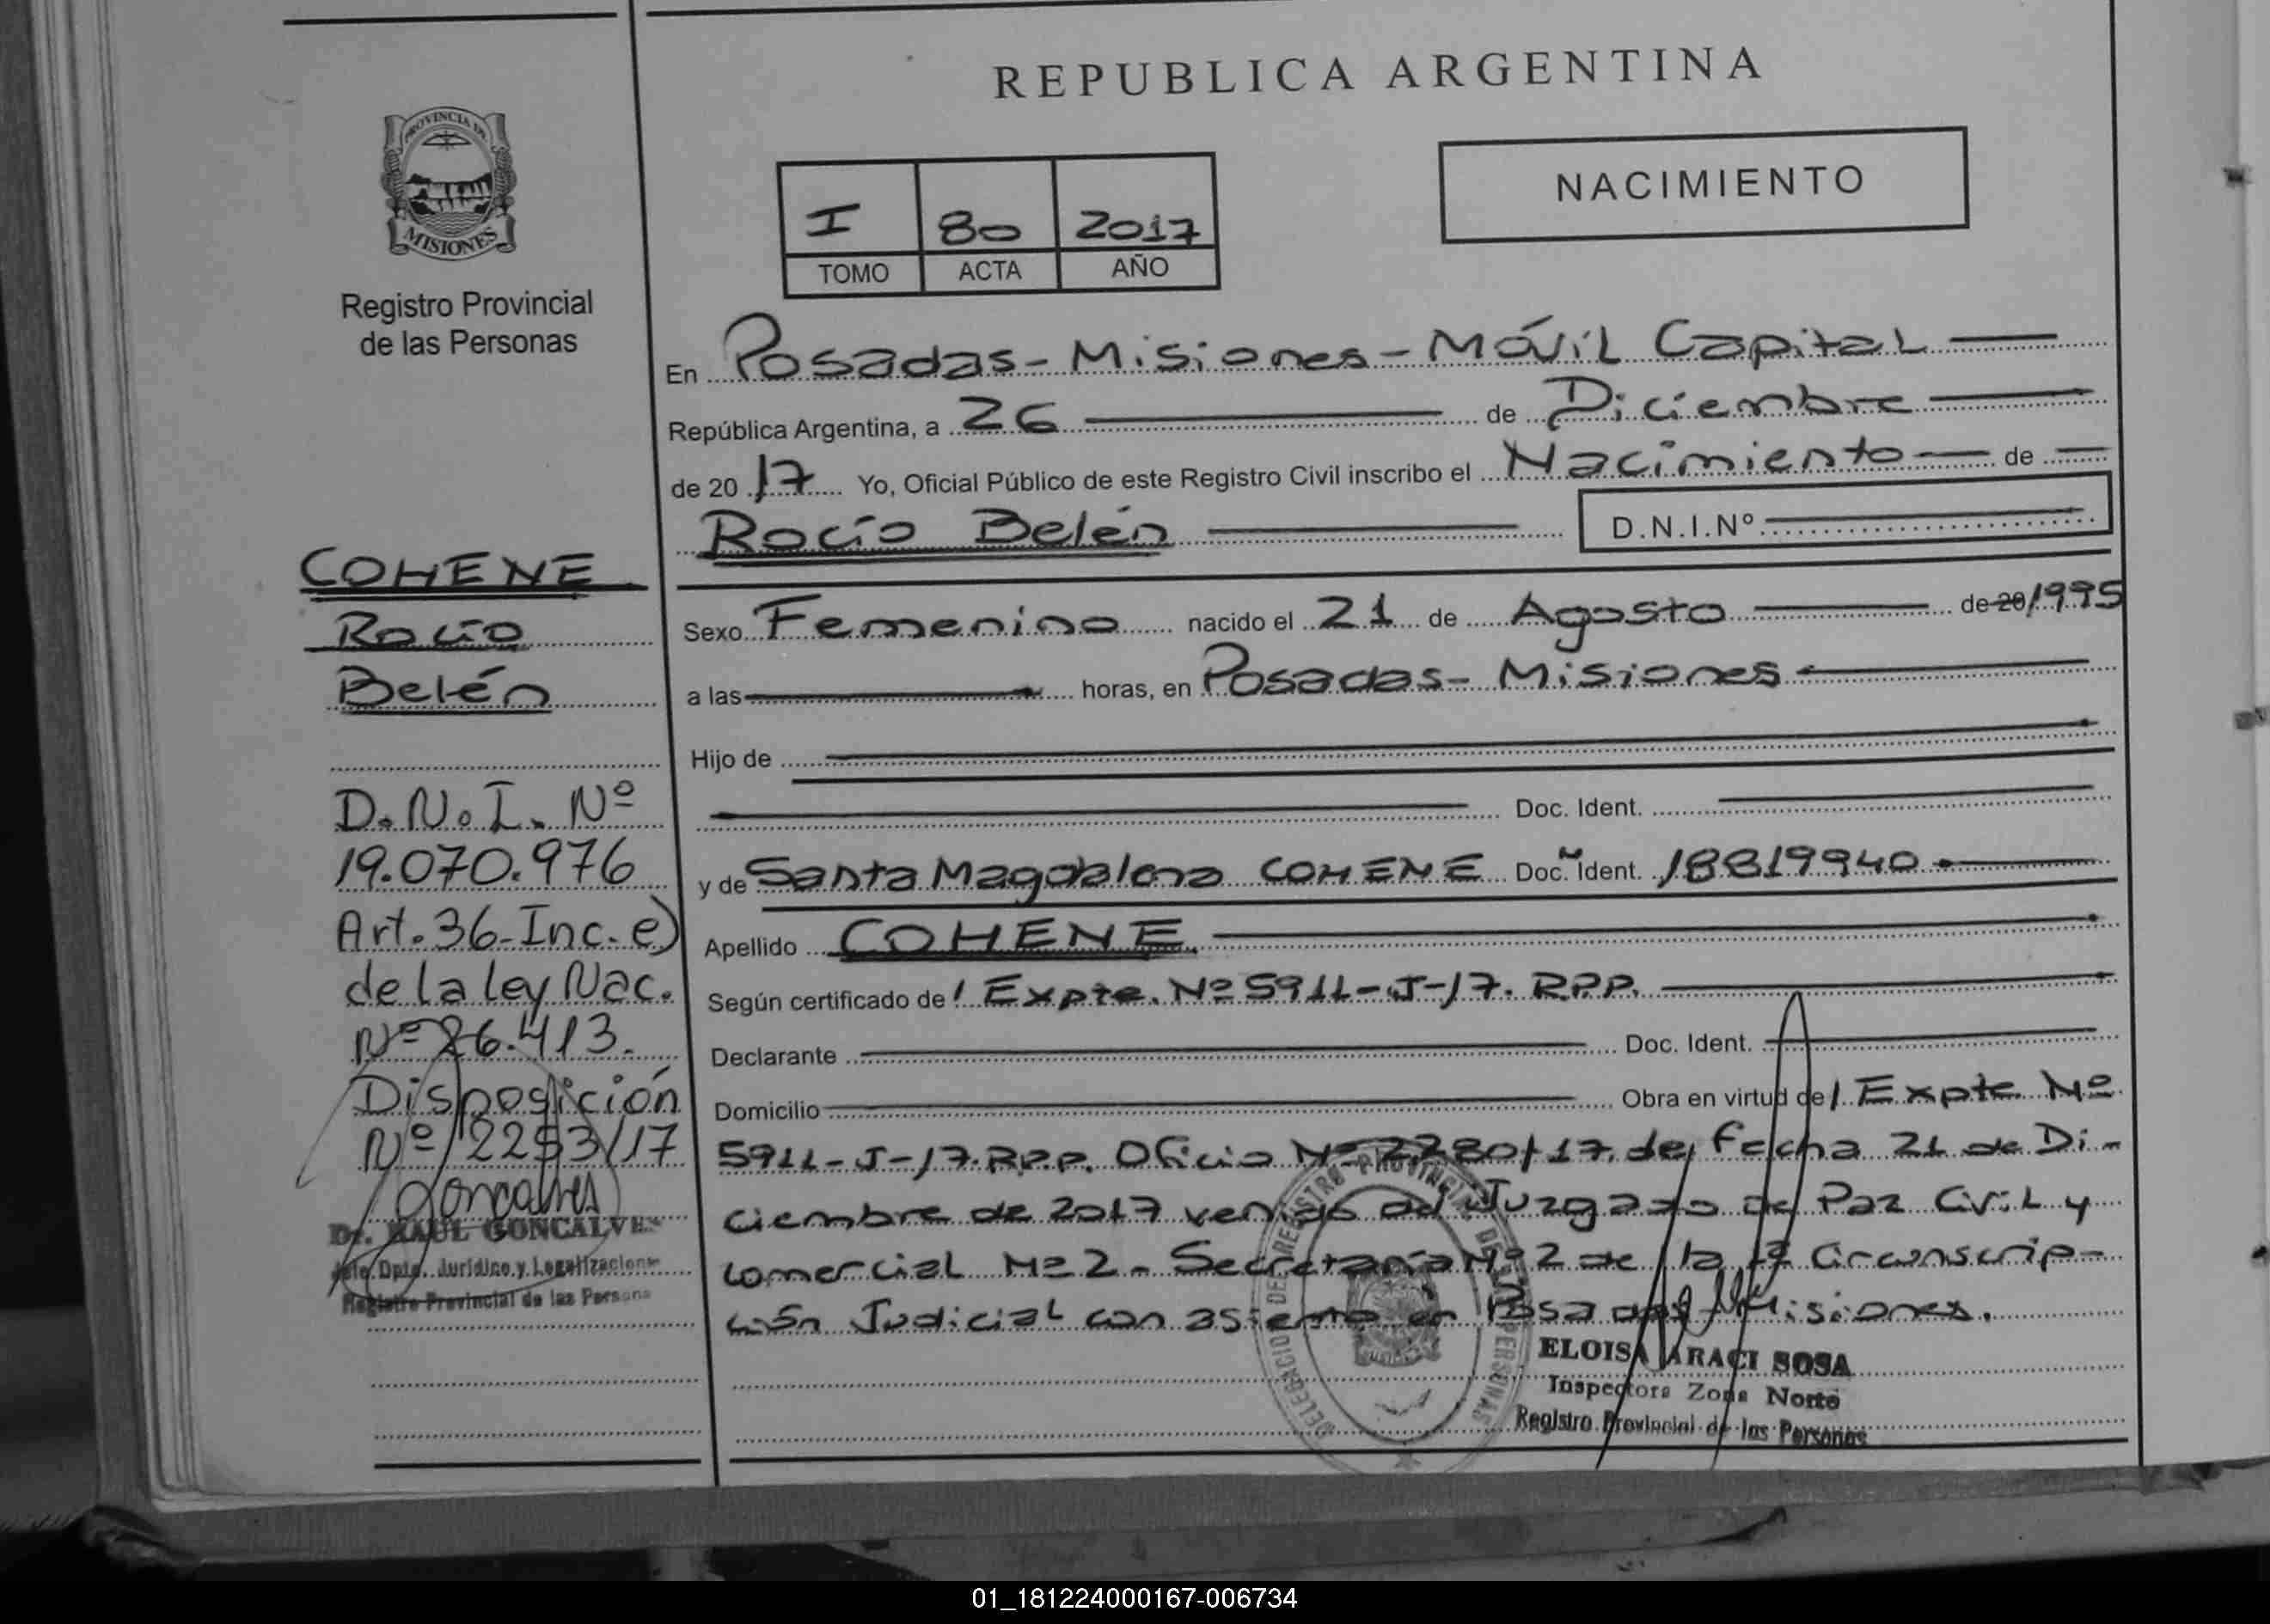 REPUBLICA ARGENTINA
PROVINCIA DE
MISIONES
Registro Provincial
de las Personas
NACIMIENTO
I 80 2017
TOMO ACTA AÑO
En Posadas - Misiones - Móvil Capital
República Argentina, a 26 de Diciembre
de 20 17 Yo, Oficial Público de este Registro Civil inscribo el Nacimiento de
Rocío Belén D.N.I.Nº
COHENE
Rocío
Belén
D.N.I. Nº
19.070.976
Art. 36-Inc. e)
de la ley Nac.
Nº 26.413.
Disposición
Nº 2253/17
Goncalves
Dr. RAUL GONCALVES
Jefe Dpto. Jurídico y Legalizacione
Registro Provincial de las Persona
Sexo Femenino nacido el 21 de Agosto de 20/1995
a las horas, en Posadas - Misiones
Hijo de
Doc. Ident.
y de Santa Magdalena COHENE Doc. Ident. 18819940
Apellido COHENE
Según certificado de / Expte. Nº 5911-J-17. R.P.P.
Declarante Doc. Ident.
Domicilio Obra en virtud de / Expte. Nº
5911-J-17. R.P.P. Oficio Nº 2280/17, de fecha 21 de Di-
ciembre de 2017 venido del Juzgado de Paz Civil y
Comercial Nº 2 - Secretaría Nº 2 de la 1ª Circunscrip-
ción Judicial con asiento en Posadas Misiones.
DELEGACION DEL REGISTRO PROVINCIAL DE LAS PERSONAS
ELOISA ARACI SOSA
Inspectora Zona Norte
Registro Provincial de las Personas
01_181224000167-006734